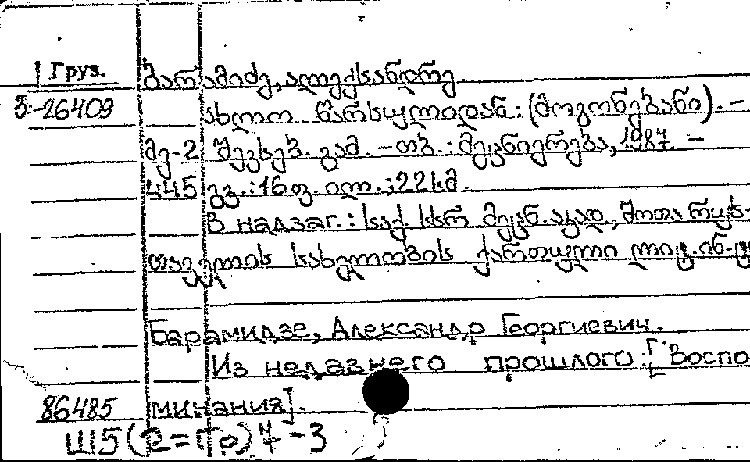 Груз. ბარამიძე, ალექსანდრე.
ვ-26409 ახლო წარსულიდან: (მოგონებანი). –
მე-2 შევსებ. გამ. – თბ.: მეცნიერება, 1987. –
445 გვ.: 16 ფ. ილ.; 22 სმ.
В надзаг.: საქ. სსრ მეცნ. აკად., შოთა რუს-
თაველის სახელობის ქართული ლიტ. ინ-ტი
Барамидзе, Александр Георгиевич.
Из недавнего прошлого: [Воспо
86485 минания].
Ш5(2=Гр)7-3